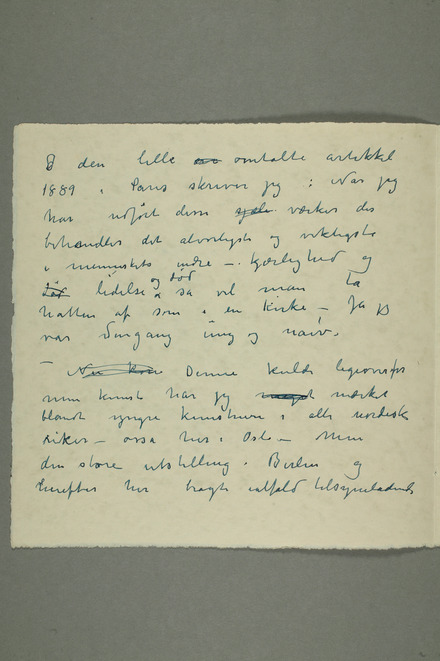 I den lille omtalte artikkel
1889 i Paris skriver jeg : Når jeg
har udført disse værker der
behandler det alvorligste og viktigste
i menneskets indre — Kjærlighed og
lidelse og død så vil man ta
hatten af som i en kirke — Ja jeg
var dengang ung og naiv.
— Denne
min kunst har jeg mærket
blandt yngre kunstnere i alle nordiske
riker — også her i Oslo — Min
den store utstilling i Berlin og
herefter her bragte ialfald tilsyneladende